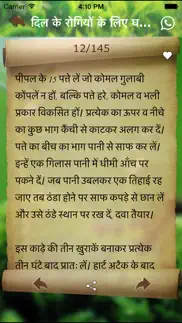 Carrier
4:10 PM
दिल के रोगियों के लिए घ...
12/145
पीपल के 15 पत्ते लें जो कोमल गुलाबी
कोंपलें न हों, बल्कि पत्ते हरे, कोमल व भली
प्रकार विकसित हों/ प्रत्येक का ऊपर व नीचे
का कुछ भाग कैंची से काटकर अलग कर दें/
पत्ते का बीच का भाग पानी से साफ कर लें/
इन्हें एक गिलास पानी में धीमी आँच पर
पकने दें/ जब पानी उबलकर एक तिहाई रह
जाए तब ठंडा होने पर साफ कपड़े से छान लें
और उसे ठंडे स्थान पर रख दें, दवा तैयार/
इस काढ़े की तीन खुराकें बनाकर प्रत्येक
तीन घंटे बाद प्रातः लें/ हार्ट अटैक के बाद